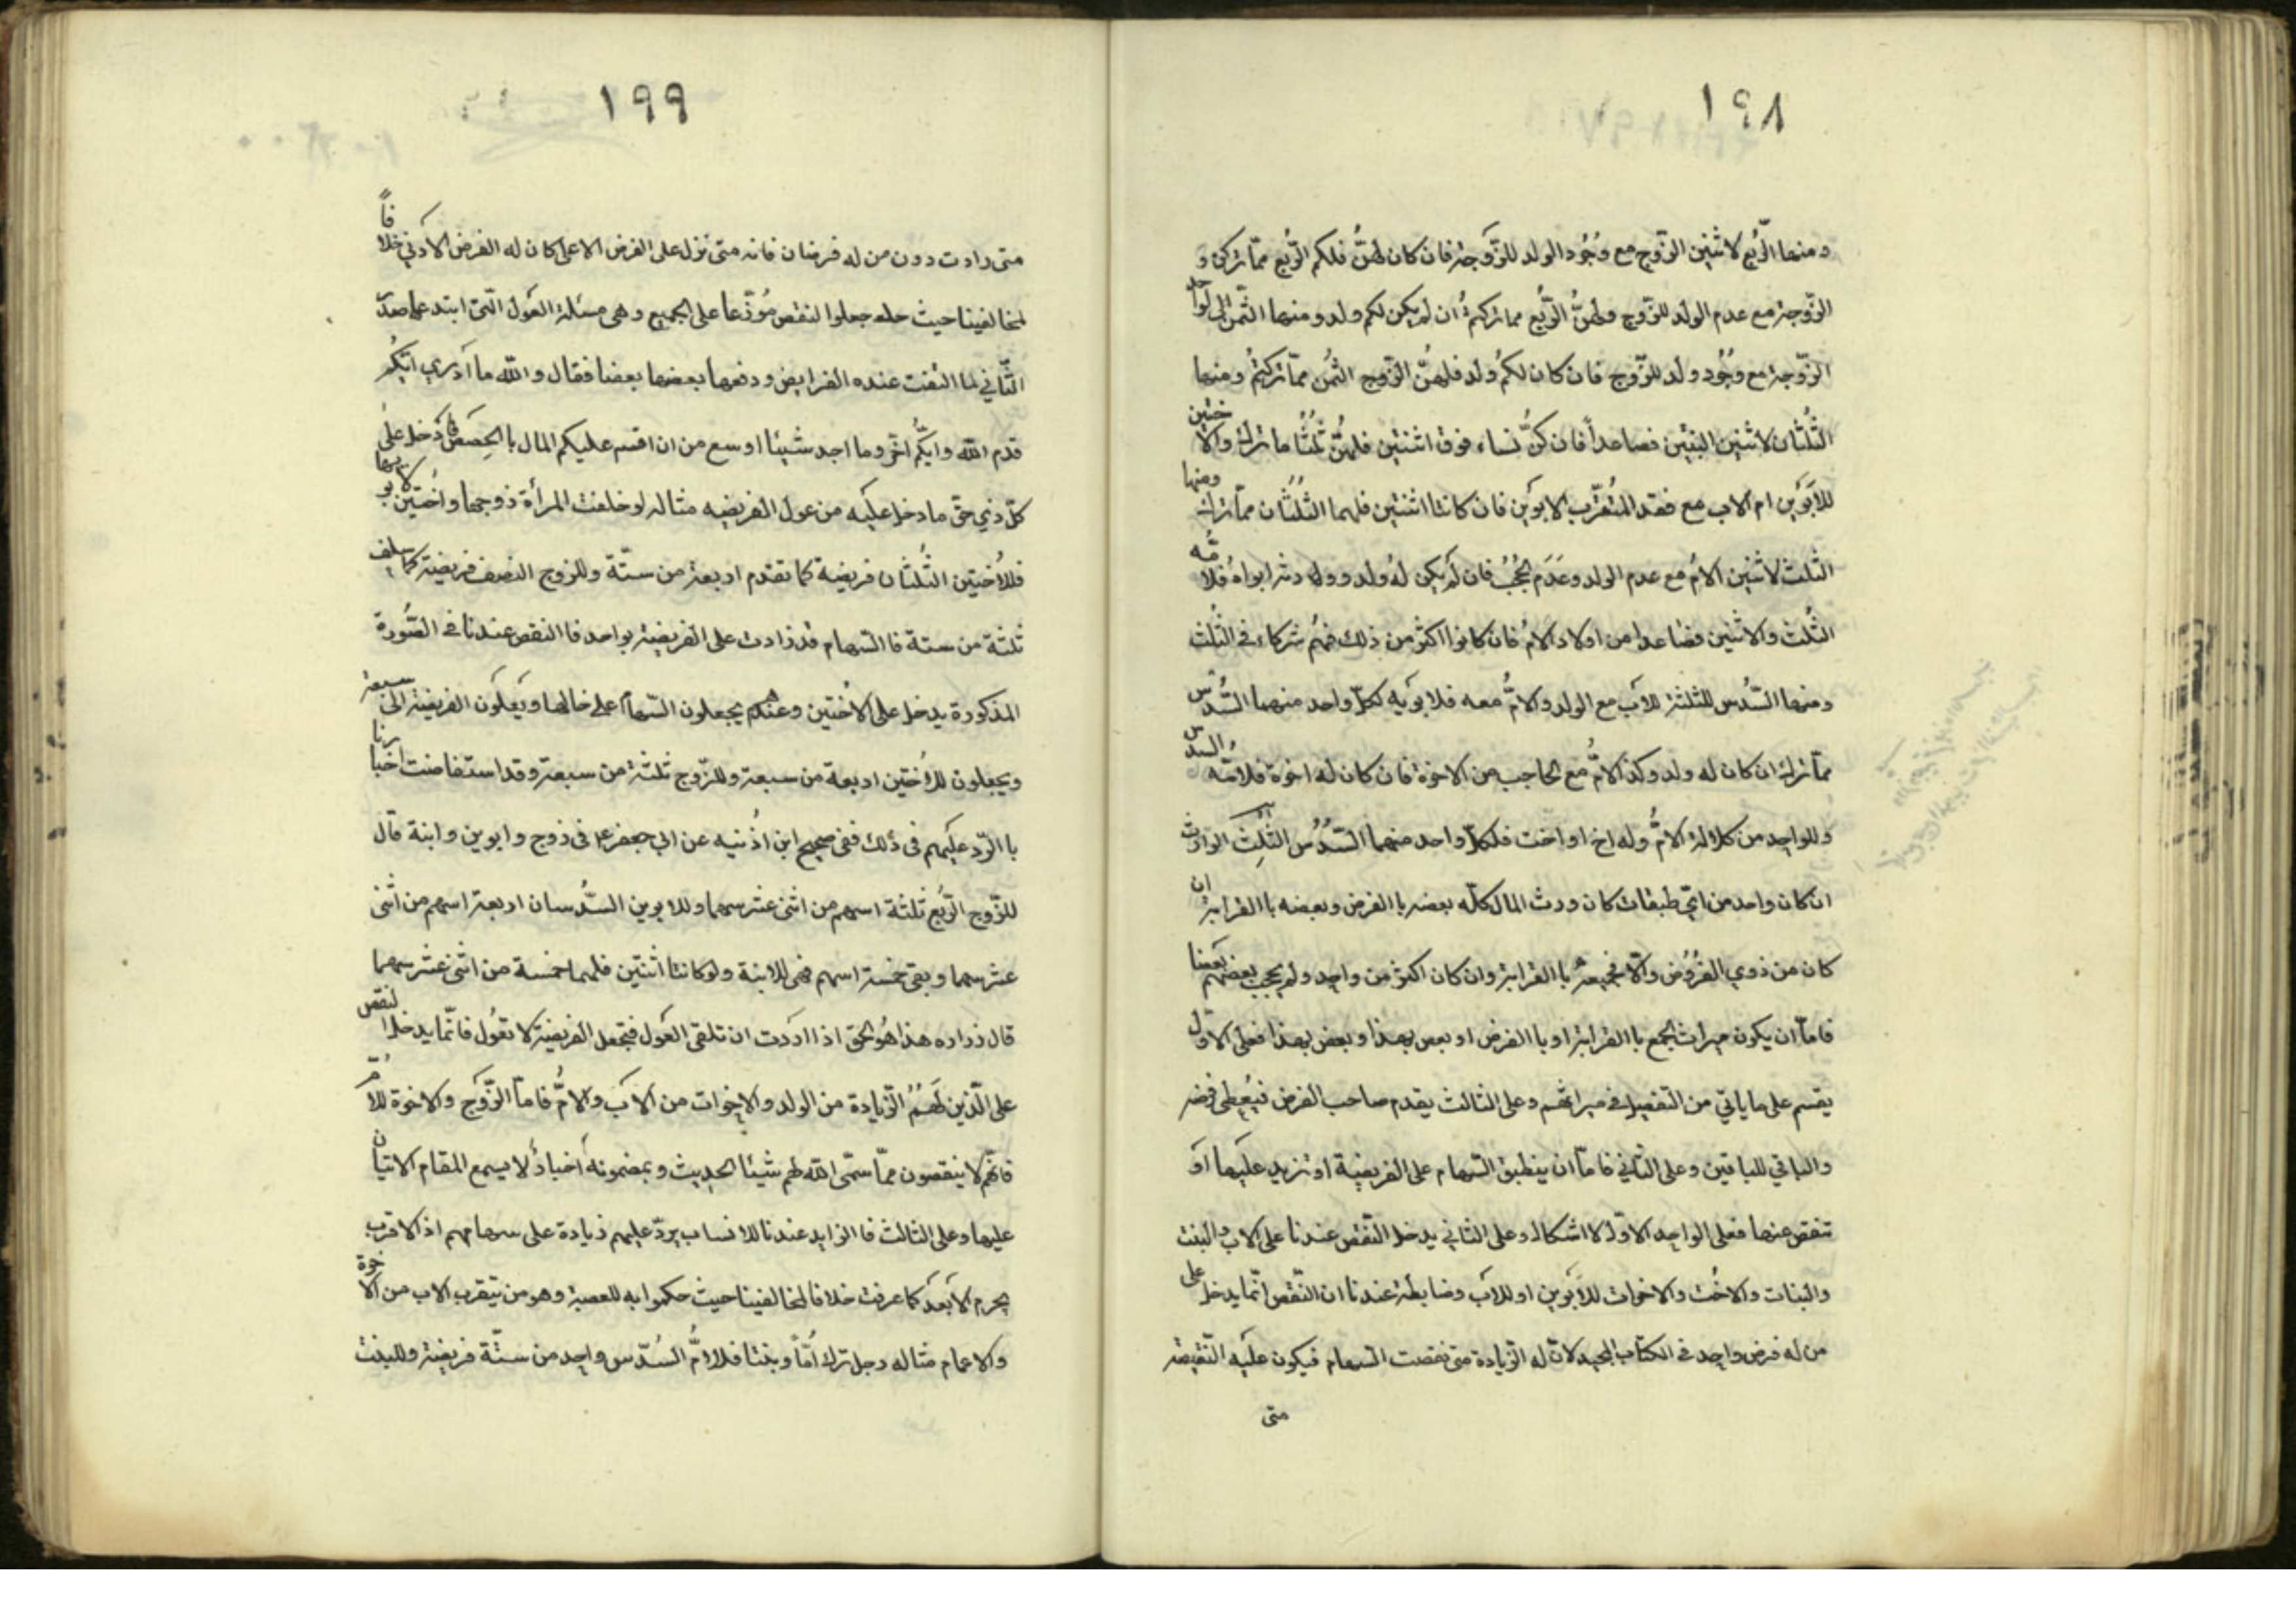 ١٩٨
ومنها الرّبع لاثنين الزّوج مع وُجُود الولد للزّوجة فان كان لهنّ فلكم الرّبع ممّا تركن و
الزّوجة مع عدم الولد للزّوج ولهنُّ الرّبع مما تركتمُ ان لم يكن لكم ولد ومنها الثّمن لواحد
الزّوجة مع وُجُود ولد للزّوج فان كان لكمُ ولد فلهنُّ الزّوج الثمُن ممّا تركتمُ ومنها
الثُلُثان لاثنين البنتين فصاعداً فان كنُّ نساء فوق اثنتين فلهنُّ ثُلُثا ما ترك والاختين
للابَوَين ام الاب مع فقد المتُقرّب الابوَين فان كانتا اثنتين فلهما الثلُثُان ممّا ترك ومنها
الثلث لاثنين الامُ مع عدم الولد وعَدَم الحجُبُ فان لم يكن لهُ ولد وورثه ابواهُ فلامُّه
الثُلث والاثنين فصُاعدا من اولاد الامُ فان كانوا اكثر من ذلك فهمُ شركاء في الثُلث
ومنها السّدُس للثلثة للاب مع الولد والامُّ معه فلابوَيه لكلّ واحد منهما السُّدس
ممّا ترك ان كان له ولد وكذ الامُّ مع الحاجب من الاخوة فان كان له اخوة فلامّه السُدس
وللواحِد من كلالة الامُّ وله اخ او اخت فلكلّ واحد منهما السّدُسُ الثُلِث الوارث
ان كان واحد من ايّ طبقات كان ورث المال كلّه بعضه با الفرض وبعضه با القرابة ان
كان من ذوي الفرُوُض والّا فجميعه با القرابة وان كان اكثر من واحِد ولم يحجب بعضهم بعَضا
فامّا ان يكون ميراث الجمع با القرابة او با الفرض او بعض بهذا وبعض بهذا فعلى الاول
يقسم على ما ياتي من التفصيل في ميراثهم وعلى الثالث يقدم صاحب الفرض فيُعطى فرضه
والباقي للباقين وعلى الثاني فامّا ان ينطبق السّهام على الفريضة او تزيد عليها اوَ
تنقص عنها فعلى الواحِد الاوّل لا اشكال وعلى الثاني يدخل النّقص عندنا على الاب والبنت
والبنات والاخُت والاخوات للابَوين او للاَب وضابطة عندنا ان النّقص انّما يدخل على
من له فرض واحِد في الكتاب المجيد لانّ له الزّيادة متى نقصت السّهام فيكون عليه النّقيصة
متى
١٩٩
متى زادت دون من له فرضان فانه متى نزل على الفرض الاعلى كان له الفرض الادَني خلافاً
لمخالفينا حيث جعلوا النقص مُوزّعا على الجميع وهي مسئلة العَول الّتي ابتدعها صدر
الثّاني لما التفت عنده الفرايض ودفعها بعضها بعضا فقال والله ما ادَري ايّكُم
قدم الله وايّكُم اخّر وما اجد شيئا اوسع من ان اقسم عليكم المال با الحِصَص فادخل على
كلّ ذي حقّ ما دخل عليَه من عول الفريضه مثاله لو خلفت المرأة زوجها واخُتين لابويها
فللاُختين الثُلثان فريضة كما تقدم اربعة من ستّة وللزوج النصف فريضة كما سلف
ثلثة من ستة فا السّهام قد زادت على الفريضة بواحد فا النقص عندنا في الصّورة
المذكورة يدخل على الاُختين وعندهم يجعلون السّهام على حالها ويَعلَون الفريضة الى سبعة
ويجعلون للاُختين اربعة من سبعة وللزّوج ثلثة من سبعة وقد استفاضت اخبارنا
با الردّ عليَهم في ذلك ففي صحيح ابن اذُنيه عن ابي جعفر ع في زوج وابوين وابنة قال
للزّوج الرّبُع ثلثة اسهم من اثنى عشر سهما وللابوين السّدُسان اربعة اسهم من اثنى
عشر سهما وبقى خمسة اسهم فهى للابنة ولو كانتا اثنتين فلهما خمسة من اثنى عشر سهما
قال زراره هذا هُو الحق اذا اردَت ان تلقى العَول فتجعل الفريضة لا تعوُل فانّما يدخل النقص
على الّذين لهَمُُ الزّيادة من الولد والاِخوات من الابَ والامُّ فامّا الزّوَج والاخوة للامُّ
فانّهم لا ينقصون ممّا سمّى الله لهم شيئا الحديث وبمضمونه أخبارُ لا يسمع المقام الاتيان
عليها وعلى الثالث فا الزايد عندنا للانساب يردّ عليهم زيادة على سهامهم اذ الاقرب
يحرم الاَبعدَ كما عرفت خلافا لمخالفينا حيث حكموا به للعصبة وهو من يتّقرب الاب من الاخوة
والاعمام مثاله رجل ترك اُمّاً وبنتا فللامُّ السُدّس واحِد من ستّة فريضة وللبنت